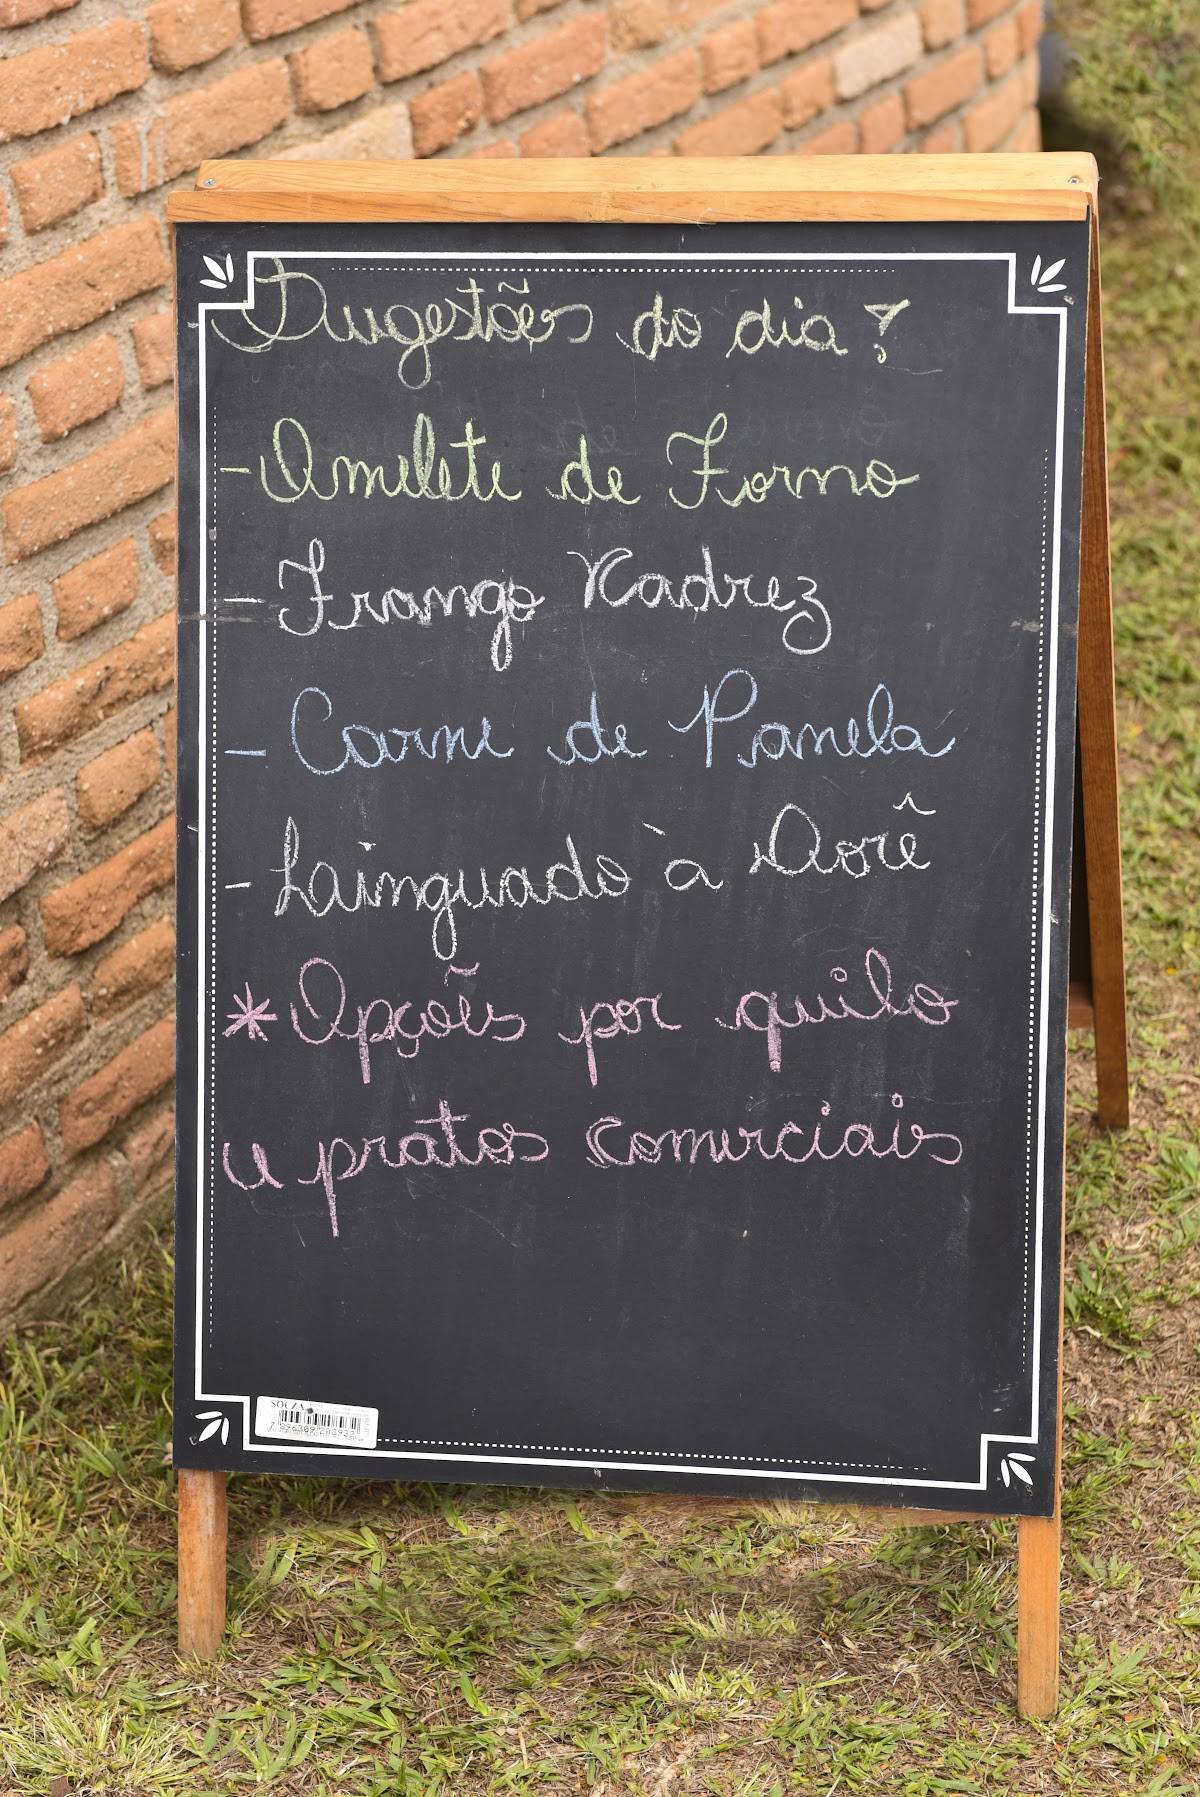 Sugestões do dia!
- Omelete de Forno
- Frango Xadrez
- Carne de Panela
- Linguado à Dorê
* Opções por quilo
e pratos comerciais
SOUZA